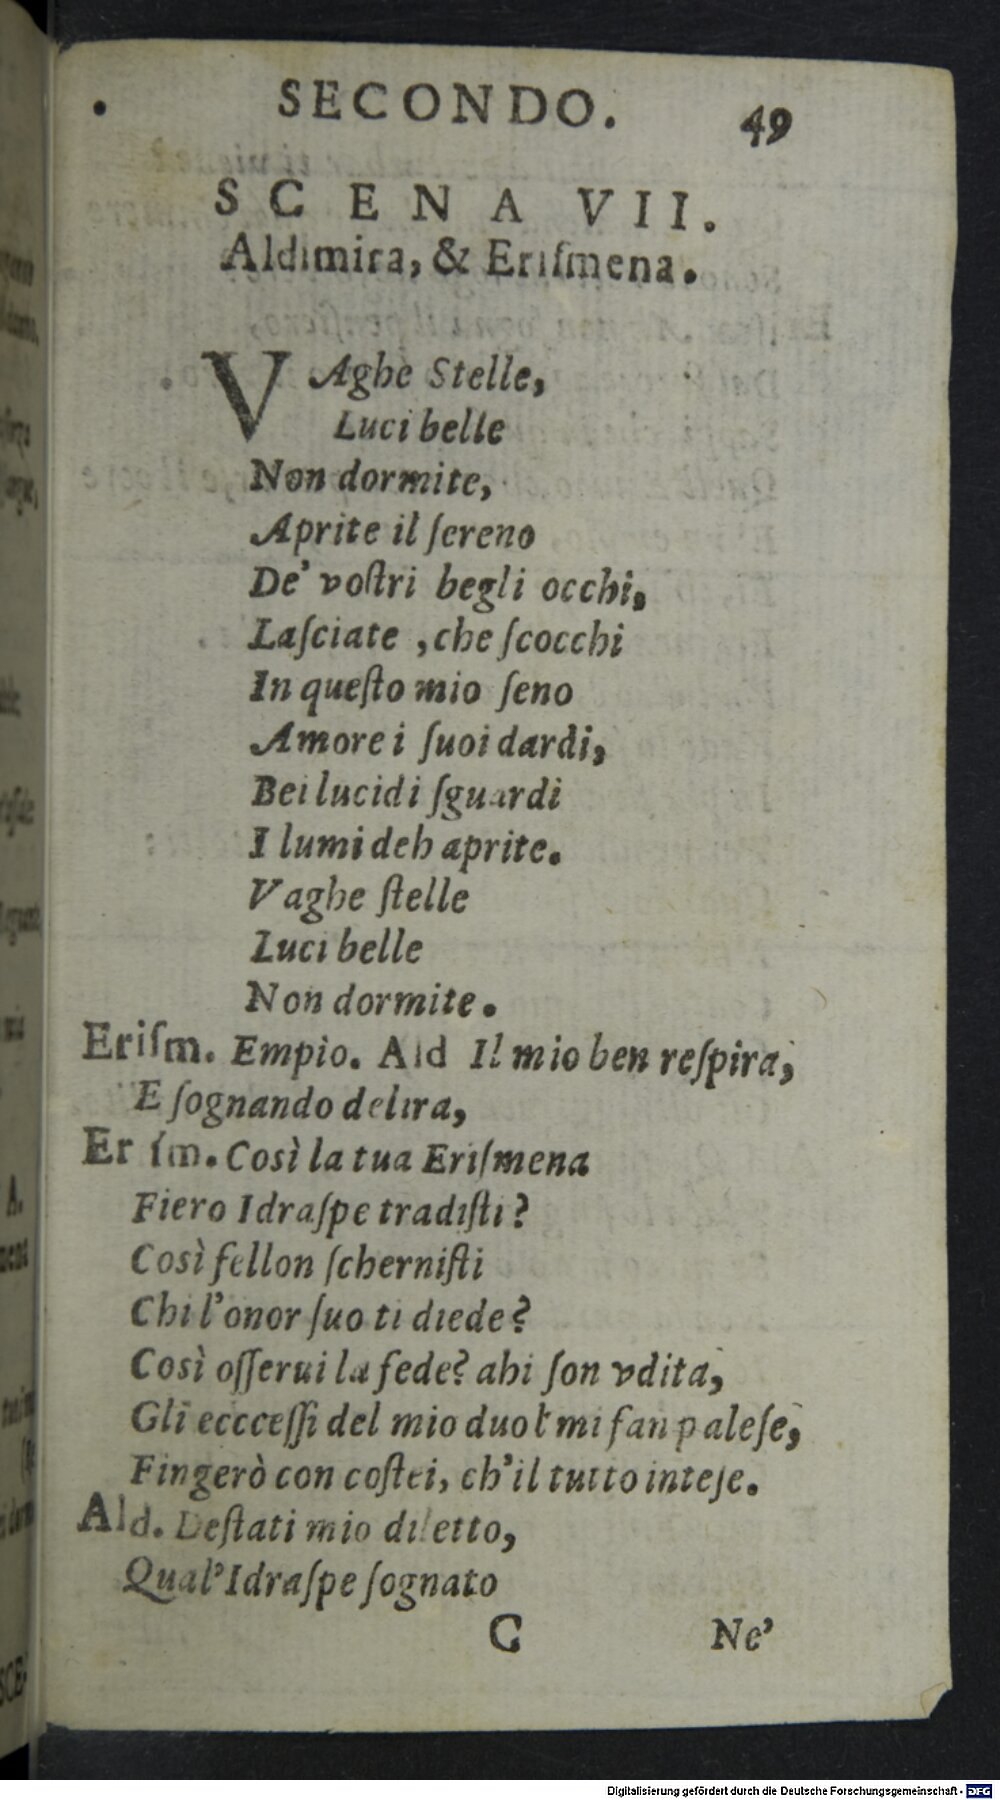 SECONDO. 49
SCENA VII.
Aldimira, & Eriſmena.
VAghe Stelle,
Luci belle
Non dormite,
Aprite il ſereno
De' voſtri begli occhi,
Laſciate , che ſcocchi
In queſto mio ſeno
Amore i ſuoi dardi,
Bei lucidi ſguardi
I lumi deh aprite.
Vaghe ſtelle
Luci belle
Non dormite.
Eriſm. Empio. Ald Il mio ben reſpira,
E ſognando delira,
Er ſm. Così la tua Eriſmena
Fiero Idraſpe tradiſti?
Così fellon ſcherniſti
Chi l'onor ſuo ti diede?
Così oſſerui la fede? ahi ſon vdita,
Gli ecceſſi del mio duol mi fan paleſe,
Fingerò con coſtei, ch'il tutto inteſe.
Ald. Deſtati mio diletto,
Qual' Idraſpe ſognato
C Ne'
Digitalisierung gefördert durch die Deutsche Forschungsgemeinschaft - DFG